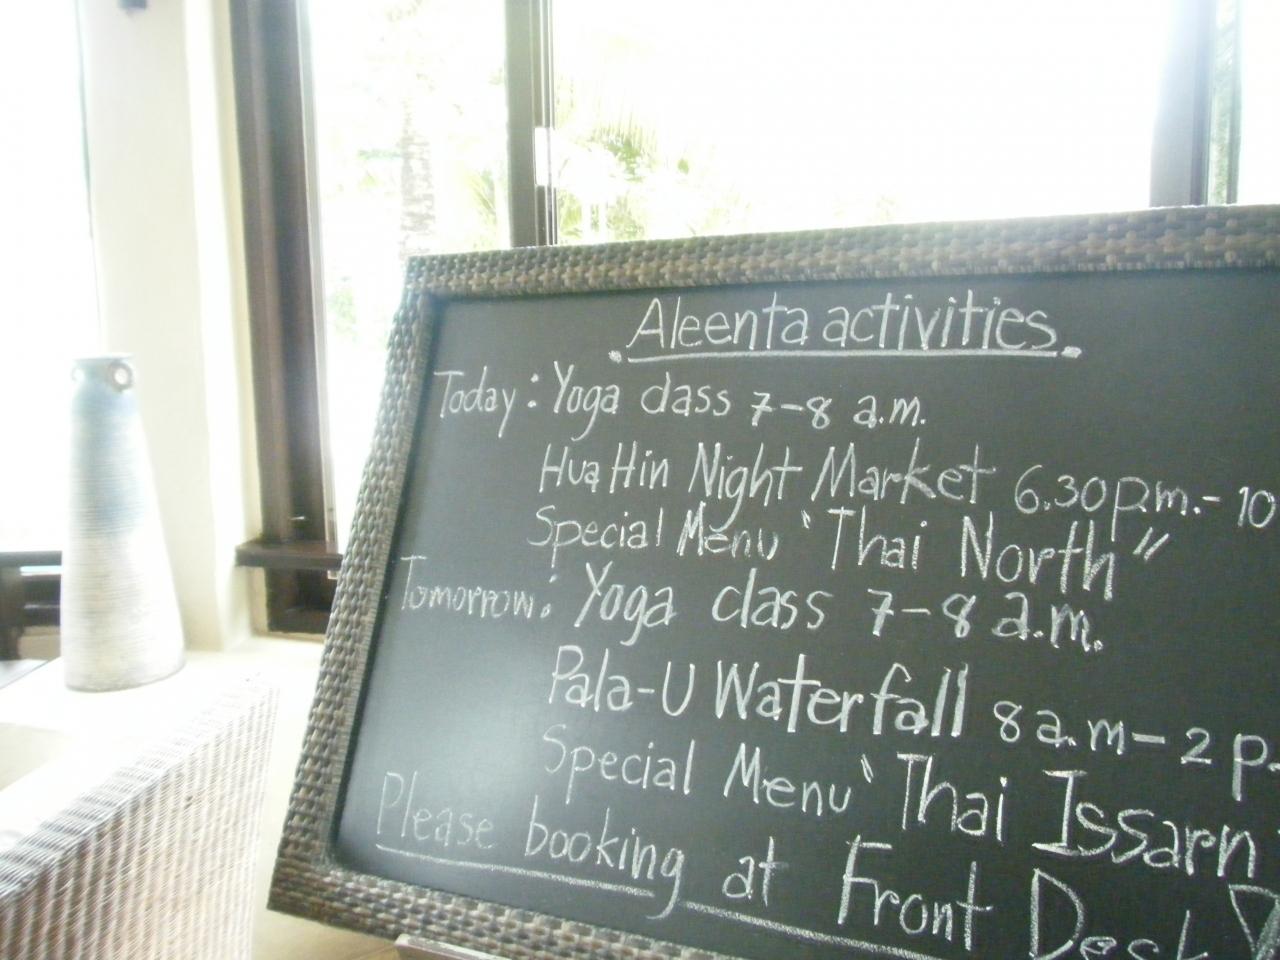 Aleenta activities.
Today: Yoga class 7-8 a.m.
Hua Hin Night Market 6.30pm.- 10
Special Menu "Thai North"
Tomorrow: Yoga class 7-8 a.m.
Pala-U Waterfall 8 a.m- 2 p.
Special Menu "Thai Issarn
Please booking at Front Desk